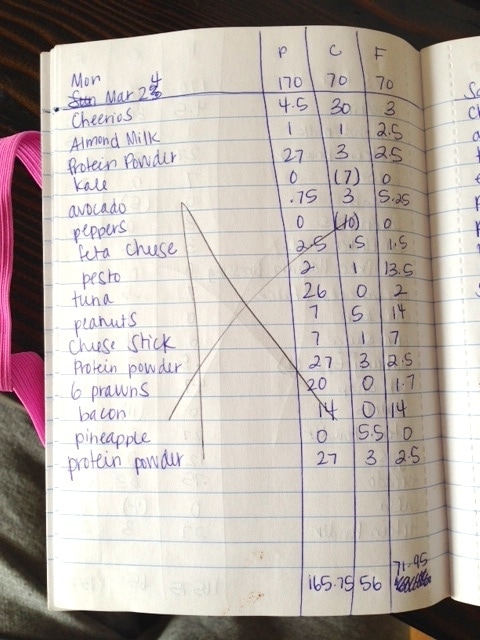 P C F
Mon 170 70 70
Mar 24
Cheerios 4.5 30 3
Almond Milk 1 1 2.5
Protein Powder 27 3 2.5
kale 0 (7) 0
avocado .75 3 5.25
peppers 0 (10) 0
feta cheese 2.5 .5 1.5
pesto 2 1 13.5
tuna 26 0 2
peanuts 7 5 14
Cheese Stick 7 1 7
Protein powder 27 3 2.5
6 prawns 20 0 1.7
bacon 14 0 14
pineapple 0 5.5 0
protein powder 27 3 2.5
165.75 56 71.95